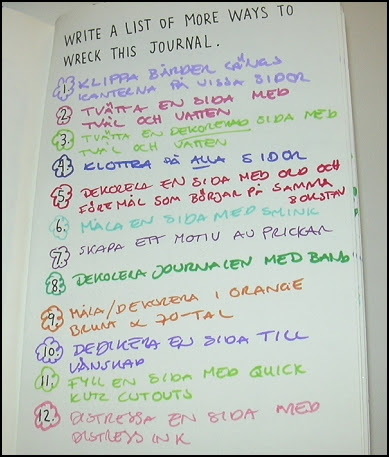 WRITE A LIST OF MORE WAYS TO
WRECK THIS JOURNAL.
1. KLIPPA BÅRDER LÄNGS
KANTERNA PÅ VISSA SIDOR
2. TVÄTTA EN SIDA MED
TVÅL OCH VATTEN
3. TVÄTTA EN DEKORERAD SIDA MED
TVÅL OCH VATTEN
4. KLOTTRA PÅ ALLA SIDOR
5. DEKORERA EN SIDA MED ORD OCH
FÖREMÅL SOM BÖRJAR PÅ SAMMA
BOKSTAV
6. MÅLA EN SIDA MED SMINK
7. SKAPA ETT MOTIV AV PRICKAR
8. DEKORERA JOURNALEN MED BAND
9. MÅLA/DEKORERA I ORANGE
BRUNT & 70-TAL
10. DEDIKERA EN SIDA TILL
VÄNSKAP
11. FYLL EN SIDA MED QUICK
KUTZ CUTOUTS
12. DISTRESSA EN SIDA MED
DISTRESS INK